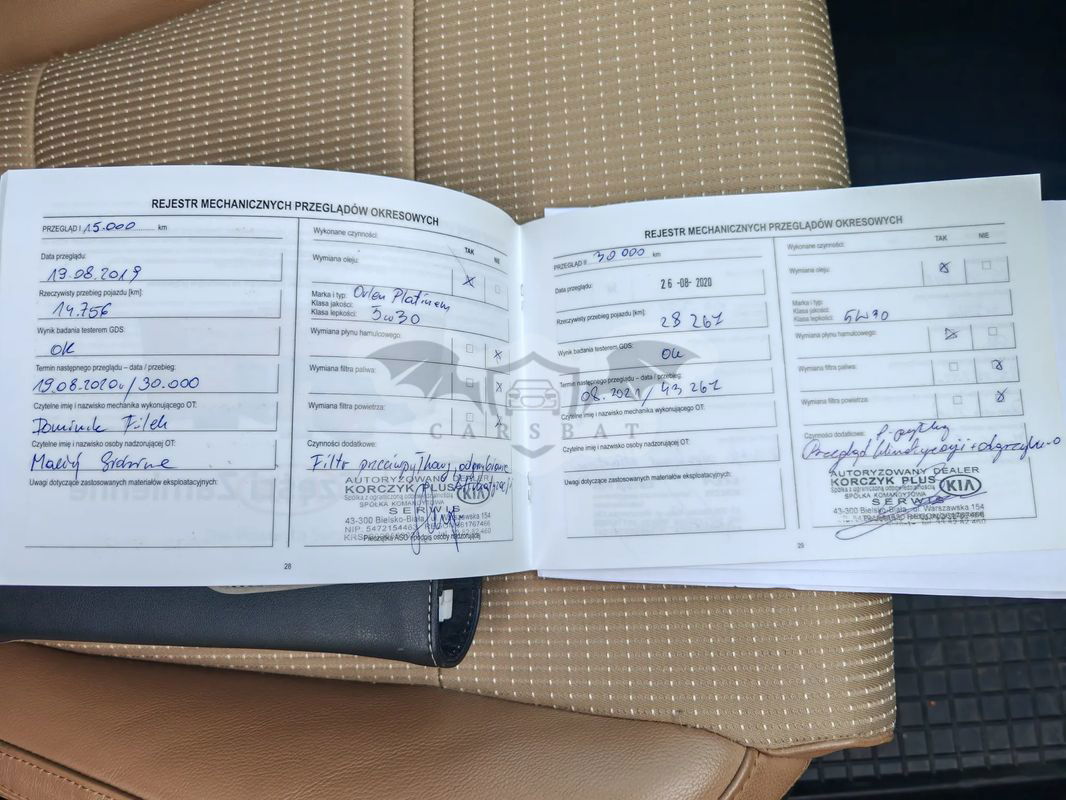 REJESTR MECHANICZNYCH PRZEGLĄDÓW OKRESOWYCH
PRZEGLĄD I 15.000 km
Data przeglądu:
19.08.2019
Rzeczywisty przebieg pojazdu [km]:
14.756
Wynik badania testerem GDS:
OK
Termin następnego przeglądu – data / przebieg:
19.08.2020r / 30.000
Czytelne imię i nazwisko mechanika wykonującego OT:
Dominik Filek
Czytelne imię i nazwisko osoby nadzorującej OT:
Maciej
Uwagi dotyczące zastosowanych materiałów eksploatacyjnych:
Wykonane czynności:
TAK NIE
Wymiana oleju:
Marka i typ: Orlen Platinum
Klasa jakości:
Klasa lepkości: 5w30
Wymiana płynu hamulcowego:
Wymiana filtra paliwa:
Wymiana filtra powietrza:
Czynności dodatkowe:
Filtr przeciwpyłkowy, odgrzybianie
klimatyzacji
AUTORYZOWANY DEALER
KORCZYK PLUS KIA
Spółka z ograniczoną odpowiedzialnością
SPÓŁKA KOMANDYTOWA
SERWIS
43-300 Bielsko-Biała, ul. Warszawska 154
Pieczątka ASO i podpis osoby nadzorującej
28
REJESTR MECHANICZNYCH PRZEGLĄDÓW OKRESOWYCH
PRZEGLĄD II 30 000 km
Data przeglądu:
26 -08- 2020
Rzeczywisty przebieg pojazdu [km]:
28 267
Wynik badania testerem GDS:
Ok
Termin następnego przeglądu – data / przebieg:
08.2021 / 43 267
Czytelne imię i nazwisko mechanika wykonującego OT:
Czytelne imię i nazwisko osoby nadzorującej OT:
Uwagi dotyczące zastosowanych materiałów eksploatacyjnych:
Wykonane czynności:
TAK NIE
Wymiana oleju:
Marka i typ:
Klasa jakości:
Klasa lepkości: 5W30
Wymiana płynu hamulcowego:
Wymiana filtra paliwa:
Wymiana filtra powietrza:
Czynności dodatkowe: f-pyłkowy
Przegląd klimatyzacji + odgrzyb-o
AUTORYZOWANY DEALER
KORCZYK PLUS KIA
Spółka z ograniczoną odpowiedzialnością
SPÓŁKA KOMANDYTOWA
SERWIS
43-300 Bielsko-Biała, ul. Warszawska 154
29
CARSBAT